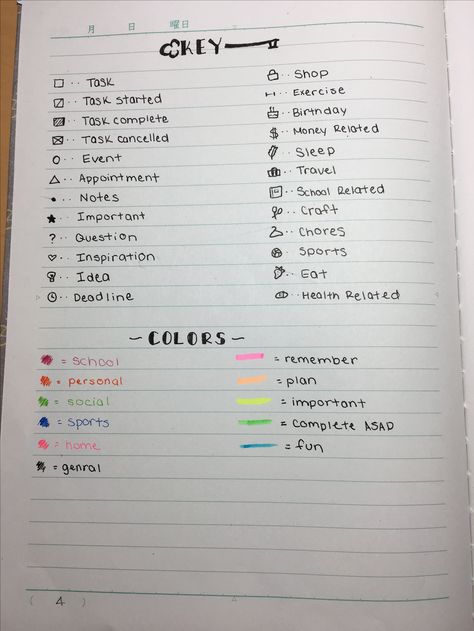 月 日 曜日
KEY
Task
Task started
Task complete
Task cancelled
Event
Appointment
Notes
Important
? Question
Inspiration
Idea
Deadline
Shop
Exercise
Birthday
$ Money Related
Sleep
Travel
School Related
Craft
Chores
Sports
Eat
Health Related
- COLORS -
= school
= personal
= social
= sports
= home
= genral
= remember
= plan
= important
= complete ASAD
= fun
( 4 )